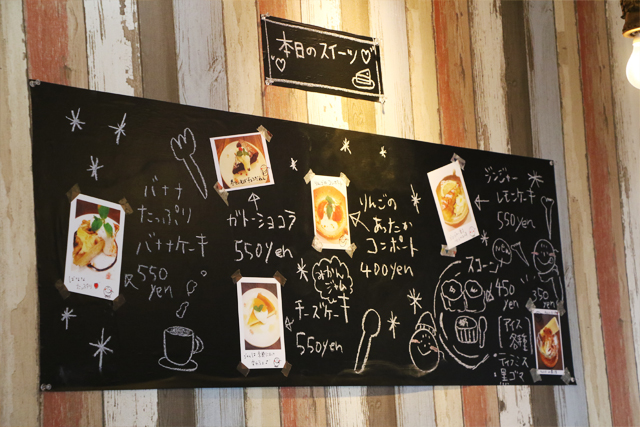 本日のスイーツ
バナナ
たっぷり
バナナケーキ
550
yen
ガトーショコラ
550yen
りんごの
あったか
コンポート
400yen
みかん
ジャム
チーズケーキ
550yen
ジンジャー
レモンケーキ
550yen
スコーン
450
yen
350
yen
アイス
各種
ティラミス
黒ゴマ